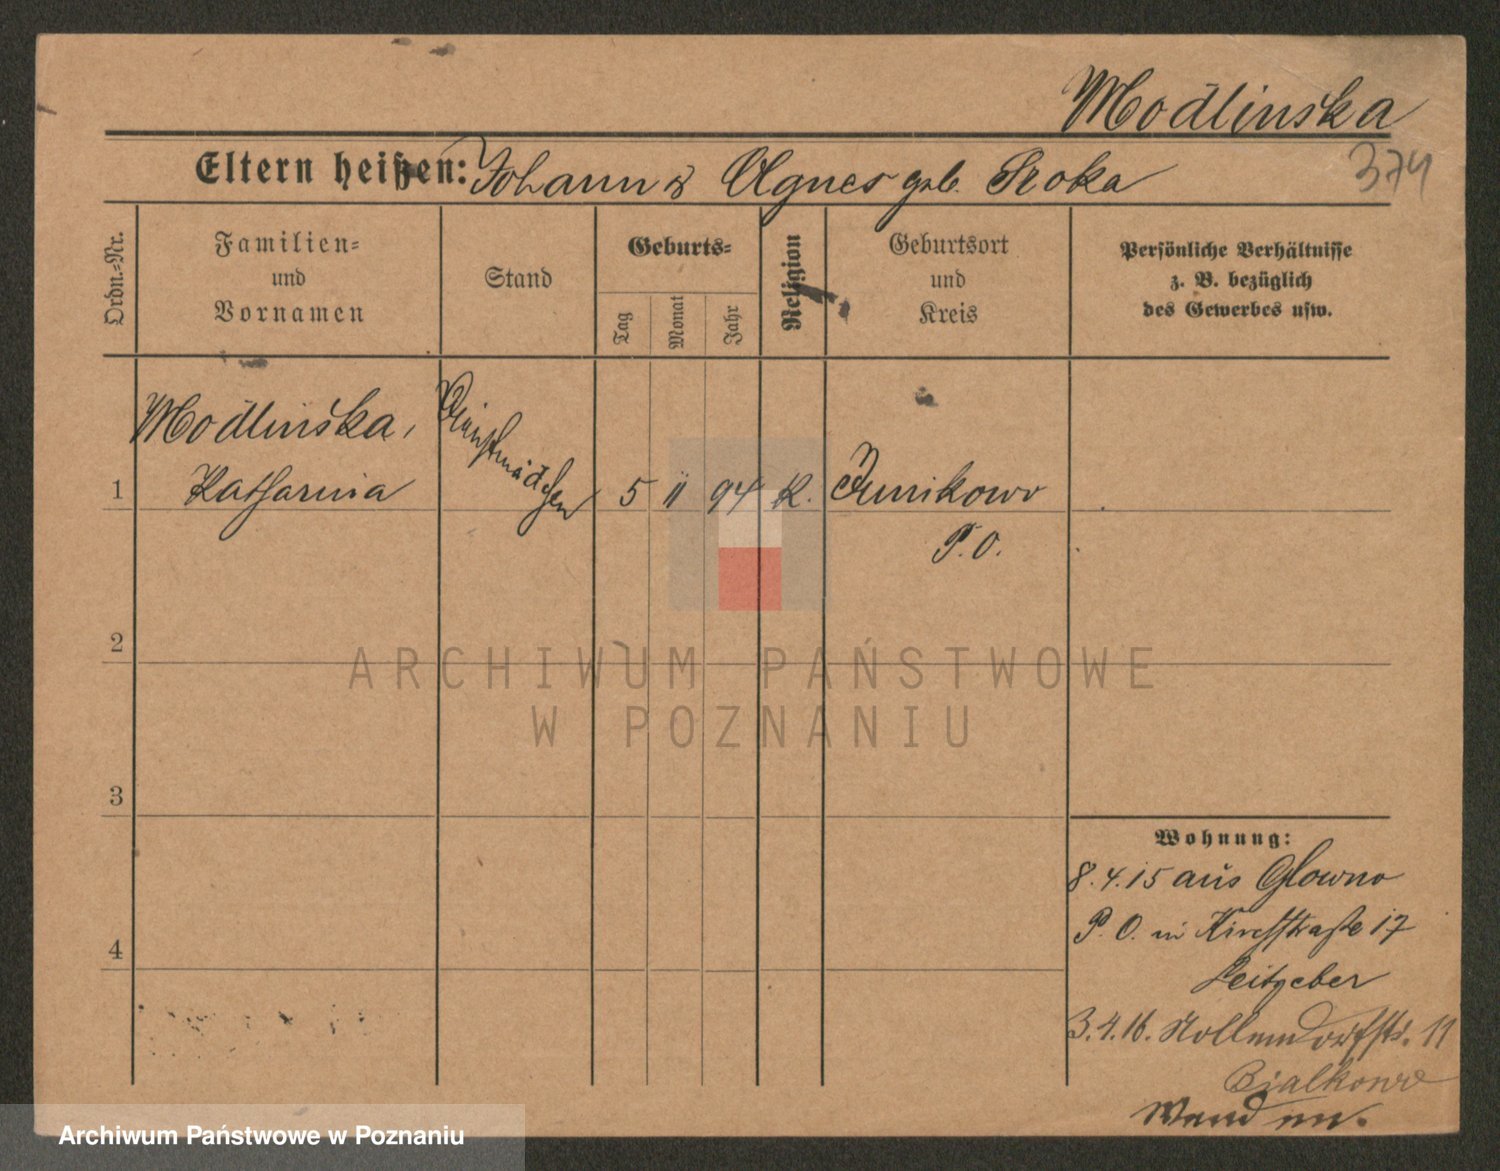 Modlinska
374
Eltern heißen: Johann & Agnes geb. Sroka
Ordn.=Nr.
Familien=
und
Vornamen
Stand
Geburts=
Tag
Monat
Jahr
Religion
Geburtsort
und
Kreis
Persönliche Verhältnisse
z. B. bezüglich
des Gewerbes usw.
1
Modlinska,
Katharina
Dienstmädchen
5 11 94 K.
Junikowo
P. O.
2
ARCHIWUM PAŃSTWOWE
W POZNANIU
3
4
Wohnung:
8.4.15 aus Glowno
P. O. in Kirchstraße 17
Leitgeber
3.4.16. Nollendorfstr. 11
Bialkowo
Archiwum Państwowe w Poznaniu